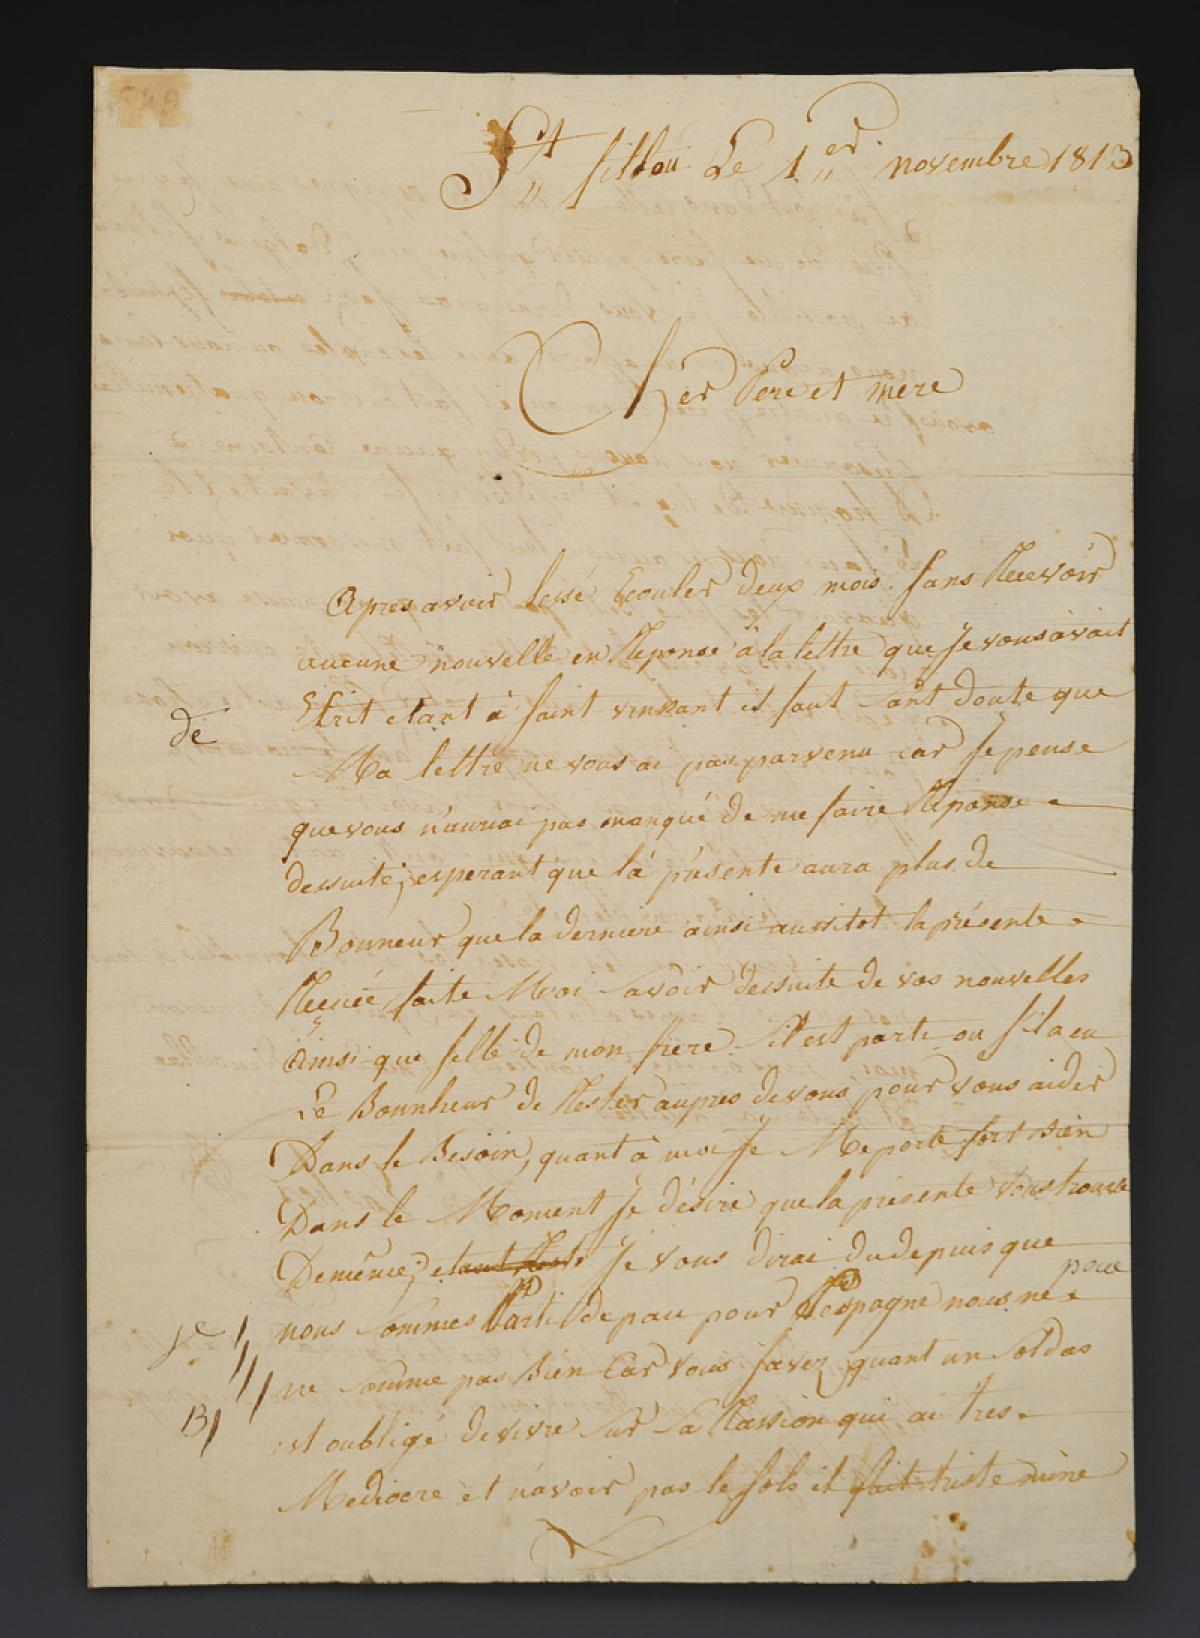 St fillou Le 1er novembre 1813
Cher Pere et mere
Apres avoir lessé Ecouler deux mois sans Recevoir
aucune nouvelle en Reponse à la lettre que Je vous avait
Ecrit etant à saint vinsant il faut sant doute que
de
Ma lettre ne vous ai pas parvenu car Je pense
que vous n'auriai pas manqué de me faire Reponse
dessuite; esperant que la présente aura plus de
Bonneur que la derniere ainsi aussitot la présente
Recüée, faite Moi savoir dessuite de vos nouvelles
ainsi que selle de mon frere s'il est parti ou s'il a eu
Le Bonnheur de Rester aupres de vous pour vous aider
Dans le Besoin, quant à moi Je Me porte fort Bien
Dans le Moment Je désire que la présente vous trouve
Demême; etant Je vous dirai du depuis que
nous sommes Parti de pau pour L'espagne nous ne
pour
Je
ne somme pas Bien Car vous savez quant un soldas
B
est oubligé de vivre sur sa Rassion qui ai tres
Mediocre et n'avoir pas le sols il fait triste mine